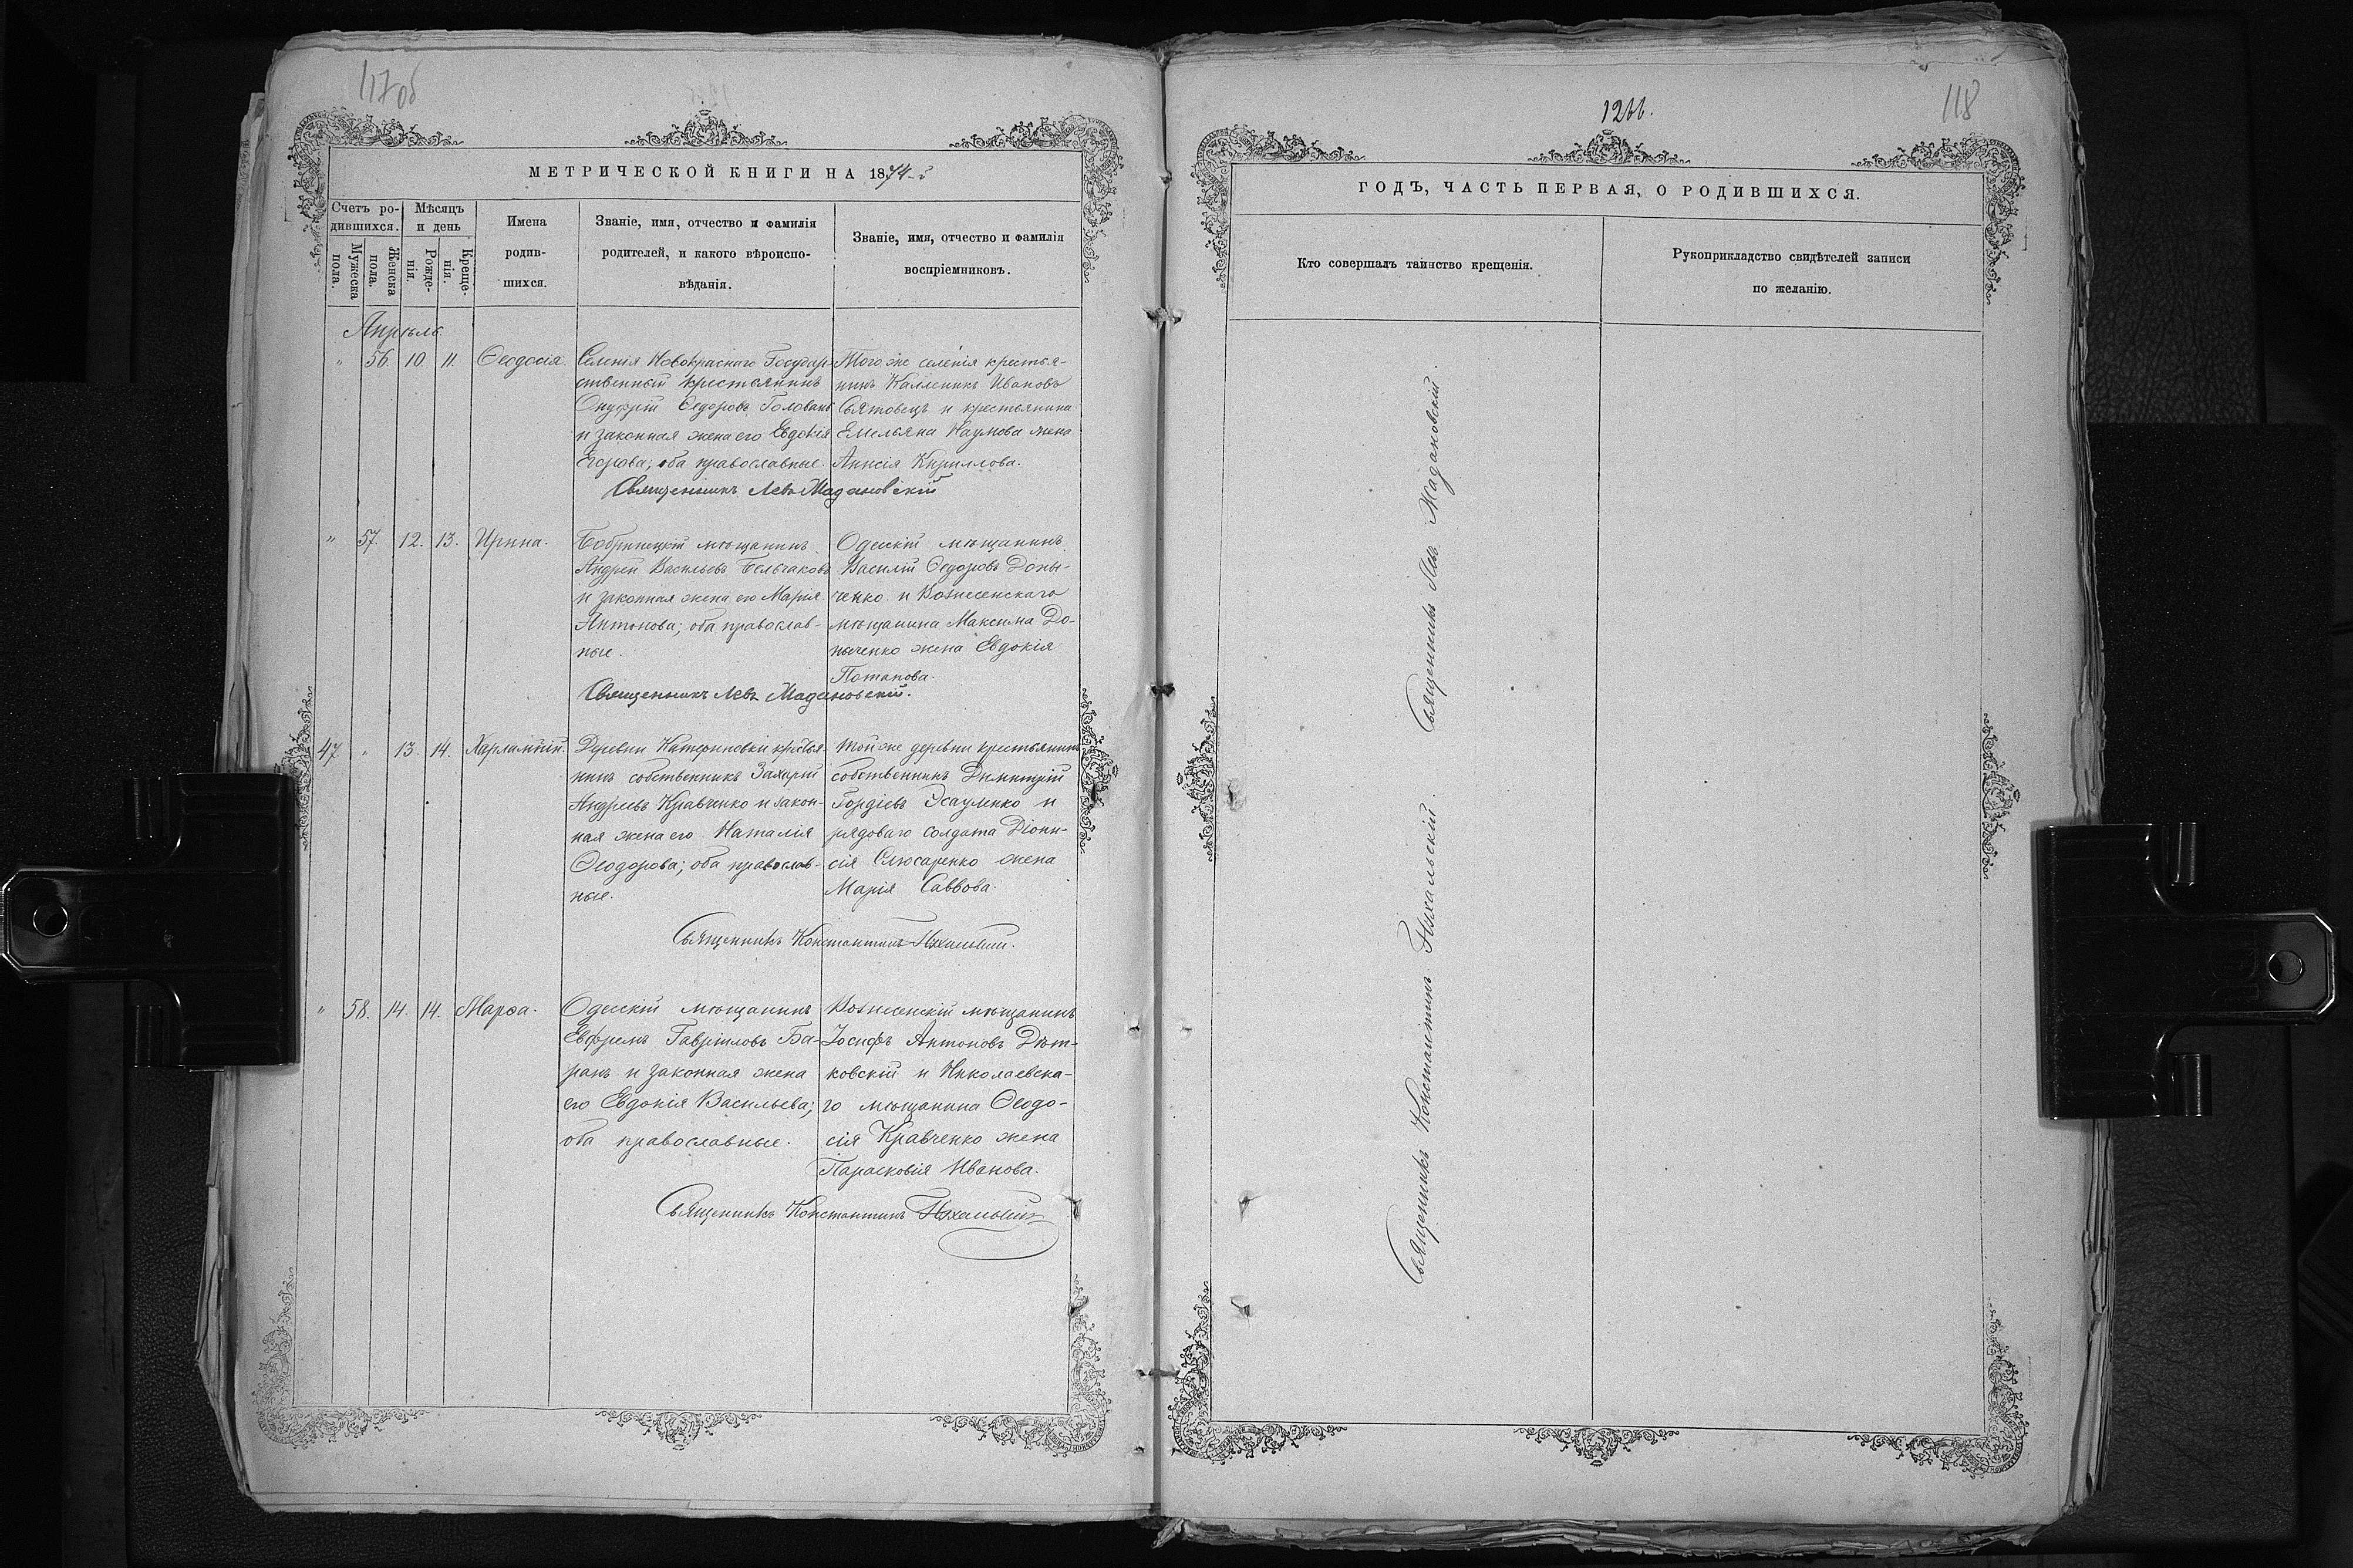 117 об
МЕТРИЧЕСКОЙ КНИГИ НА 1874-й
Счетъ ро-
дившихся.
Мужеска
пола.
Женска
пола.
Мѣсяцъ
и день
Рожде-
нія.
Креще-
нія.
Имена
родив-
шихся.
Званіе, имя, отчество и фамилія
родителей, и какого вѣроиспо-
вѣданія.
Званіе, имя, отчество и фамилія
воспріемниковъ.
Апрѣль
" 56. 10. 11. Ѳеодосія.
Селенія Новокраснаго Государ-
ственный крестьянинъ
Онуфрій Ѳедоровъ Голованъ
и законная жена его Евдокія
Егорова; оба православные.
Того же селенія крестья-
нинъ Каленикъ Ивановъ
Святовецъ и крестьянина
Емельяна Наумова жена
Анисія Кириллова.
Священникъ Левъ Мадановскій
" 57. 12. 13. Ирина.
Бобринецкій мѣщанинъ
Андрей Васильевъ Бельчаковъ
и законная жена его Марія
Антонова; оба православ-
ные.
Одесскій мѣщанинъ
Василій Ѳедоровъ Доны-
ченко и Вознесенскаго
мѣщанина Максима До-
ныченко жена Евдокія
Потапова.
Священникъ Левъ Мадановскій.
47 " 13. 14. Харлампій.
Деревни Катериновки крестья-
нинъ собственникъ Захарій
Андреевъ Кравченко и закон-
ная жена его Наталія
Ѳеодорова; оба православ-
ные.
Той же деревни крестьянинъ
собственникъ Димитрій
Гордіевъ Эсауленко и
рядоваго солдата Діони-
сія Слюсаренко жена
Марія Саввова.
Священникъ Константинъ
" 58. 14. 14. Марѳа.
Одесскій мѣщанинъ
Евфремъ Гавріиловъ Ба-
ранъ и законная жена
его Евдокія Васильева;
оба православные.
Вознесенскій мѣщанинъ
Іосифъ Антоновъ Дѣт-
ковскій и Николаевска-
го мѣщанина Ѳеодо-
сія Кравченко жена
Парасковія Иванова.
Священникъ Константинъ
1266.
118
ГОДЪ, ЧАСТЬ ПЕРВАЯ, О РОДИВШИХСЯ.
Кто совершалъ таинство крещенія.
Рукоприкладство свидѣтелей записи
по желанію.
Священникъ Левъ Мадановскій.
Священникъ Константинъ